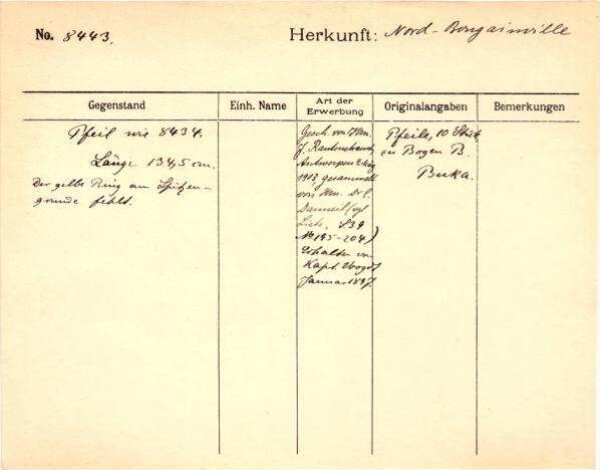 No. 8443.
Herkunft: Nord-Bougainville
Gegenstand
Einh. Name
Art der Erwerbung
Originalangaben
Bemerkungen
Pfeil wie 8434.
Länge 134,5 cm.
Der gelbe Ring am Spitzen-
grunde fehlt.
Gesch. von Hrn.
J. Rautenstrauch,
Antwerpen
1913, gesammelt
von Hrn. Dr.
Liste, S39
No 195-204)
Erhalten von
Kapt. Voogdt
Januar 1897
Pfeile, 10 Stück
zu Bogen B.
Buka.